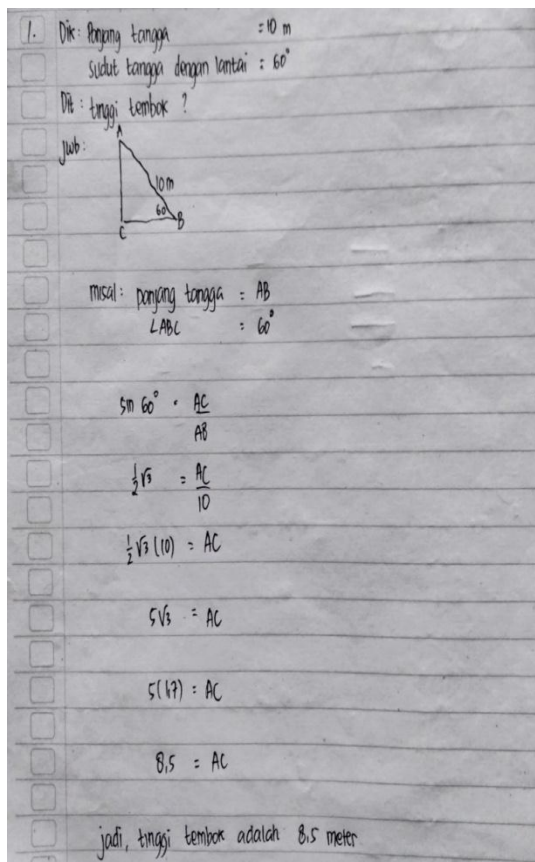 1. Dik : Panjang tangga = 10 m
Sudut tangga dengan lantai : 60°
Dit : tinggi tembok ?
jwb :
A
10 m
60
C B
misal : panjang tangga = AB
∠ABC : 60°
sin 60° = AC/AB
½√3 = AC/10
½√3 (10) = AC
5√3 = AC
5(1,7) = AC
8,5 = AC
jadi, tinggi tembok adalah 8,5 meter